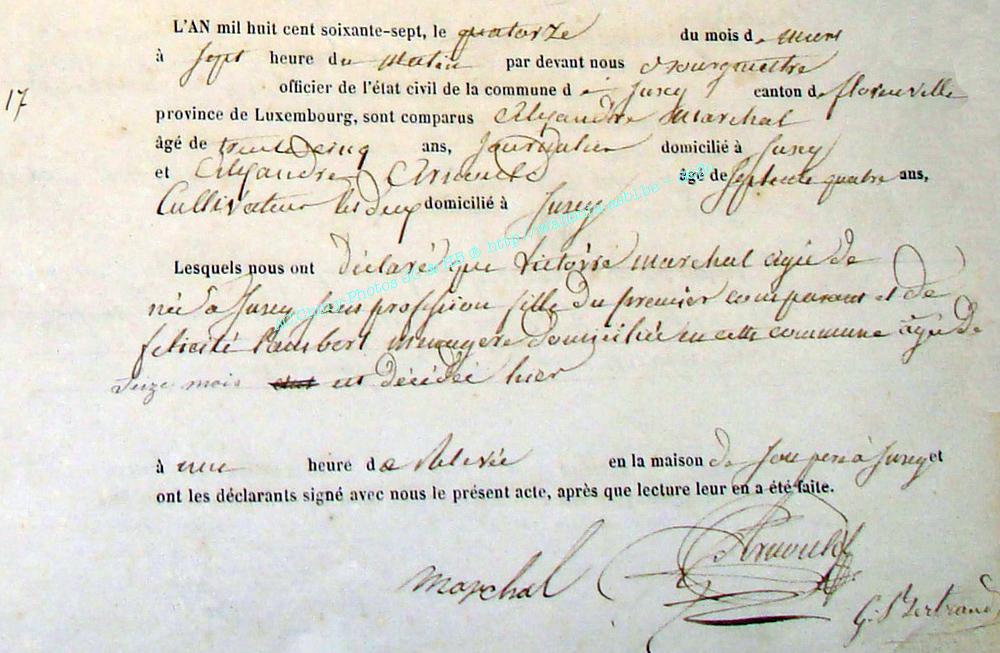 L'AN mil huit cent soixante-sept, le quatorze du mois de mars
à sept heure du matin par devant nous Bourgmestre
17
officier de l'état civil de la commune de Jusey canton de florenville
province de Luxembourg, sont comparus Alexandre Marchal
âgé de trente cinq ans, Journalier domicilié à Jusey
et Alexandre Arnould âgé de septente quatre ans,
Cultivateur les deux domicilié à Jusey
Lesquels nous ont déclaré que Victoire Marchal agée de
née à Jusey sans profession fille du premier comparant et de
felicité Lambert ménagere domiciliée en cette commune âgée de
Seize mois est décédée hier
à une heure de Relevée en la maison de son pere à Jusey et
ont les déclarants signé avec nous le présent acte, après que lecture leur en a été faite.
Marchal Arnould
Bertrand